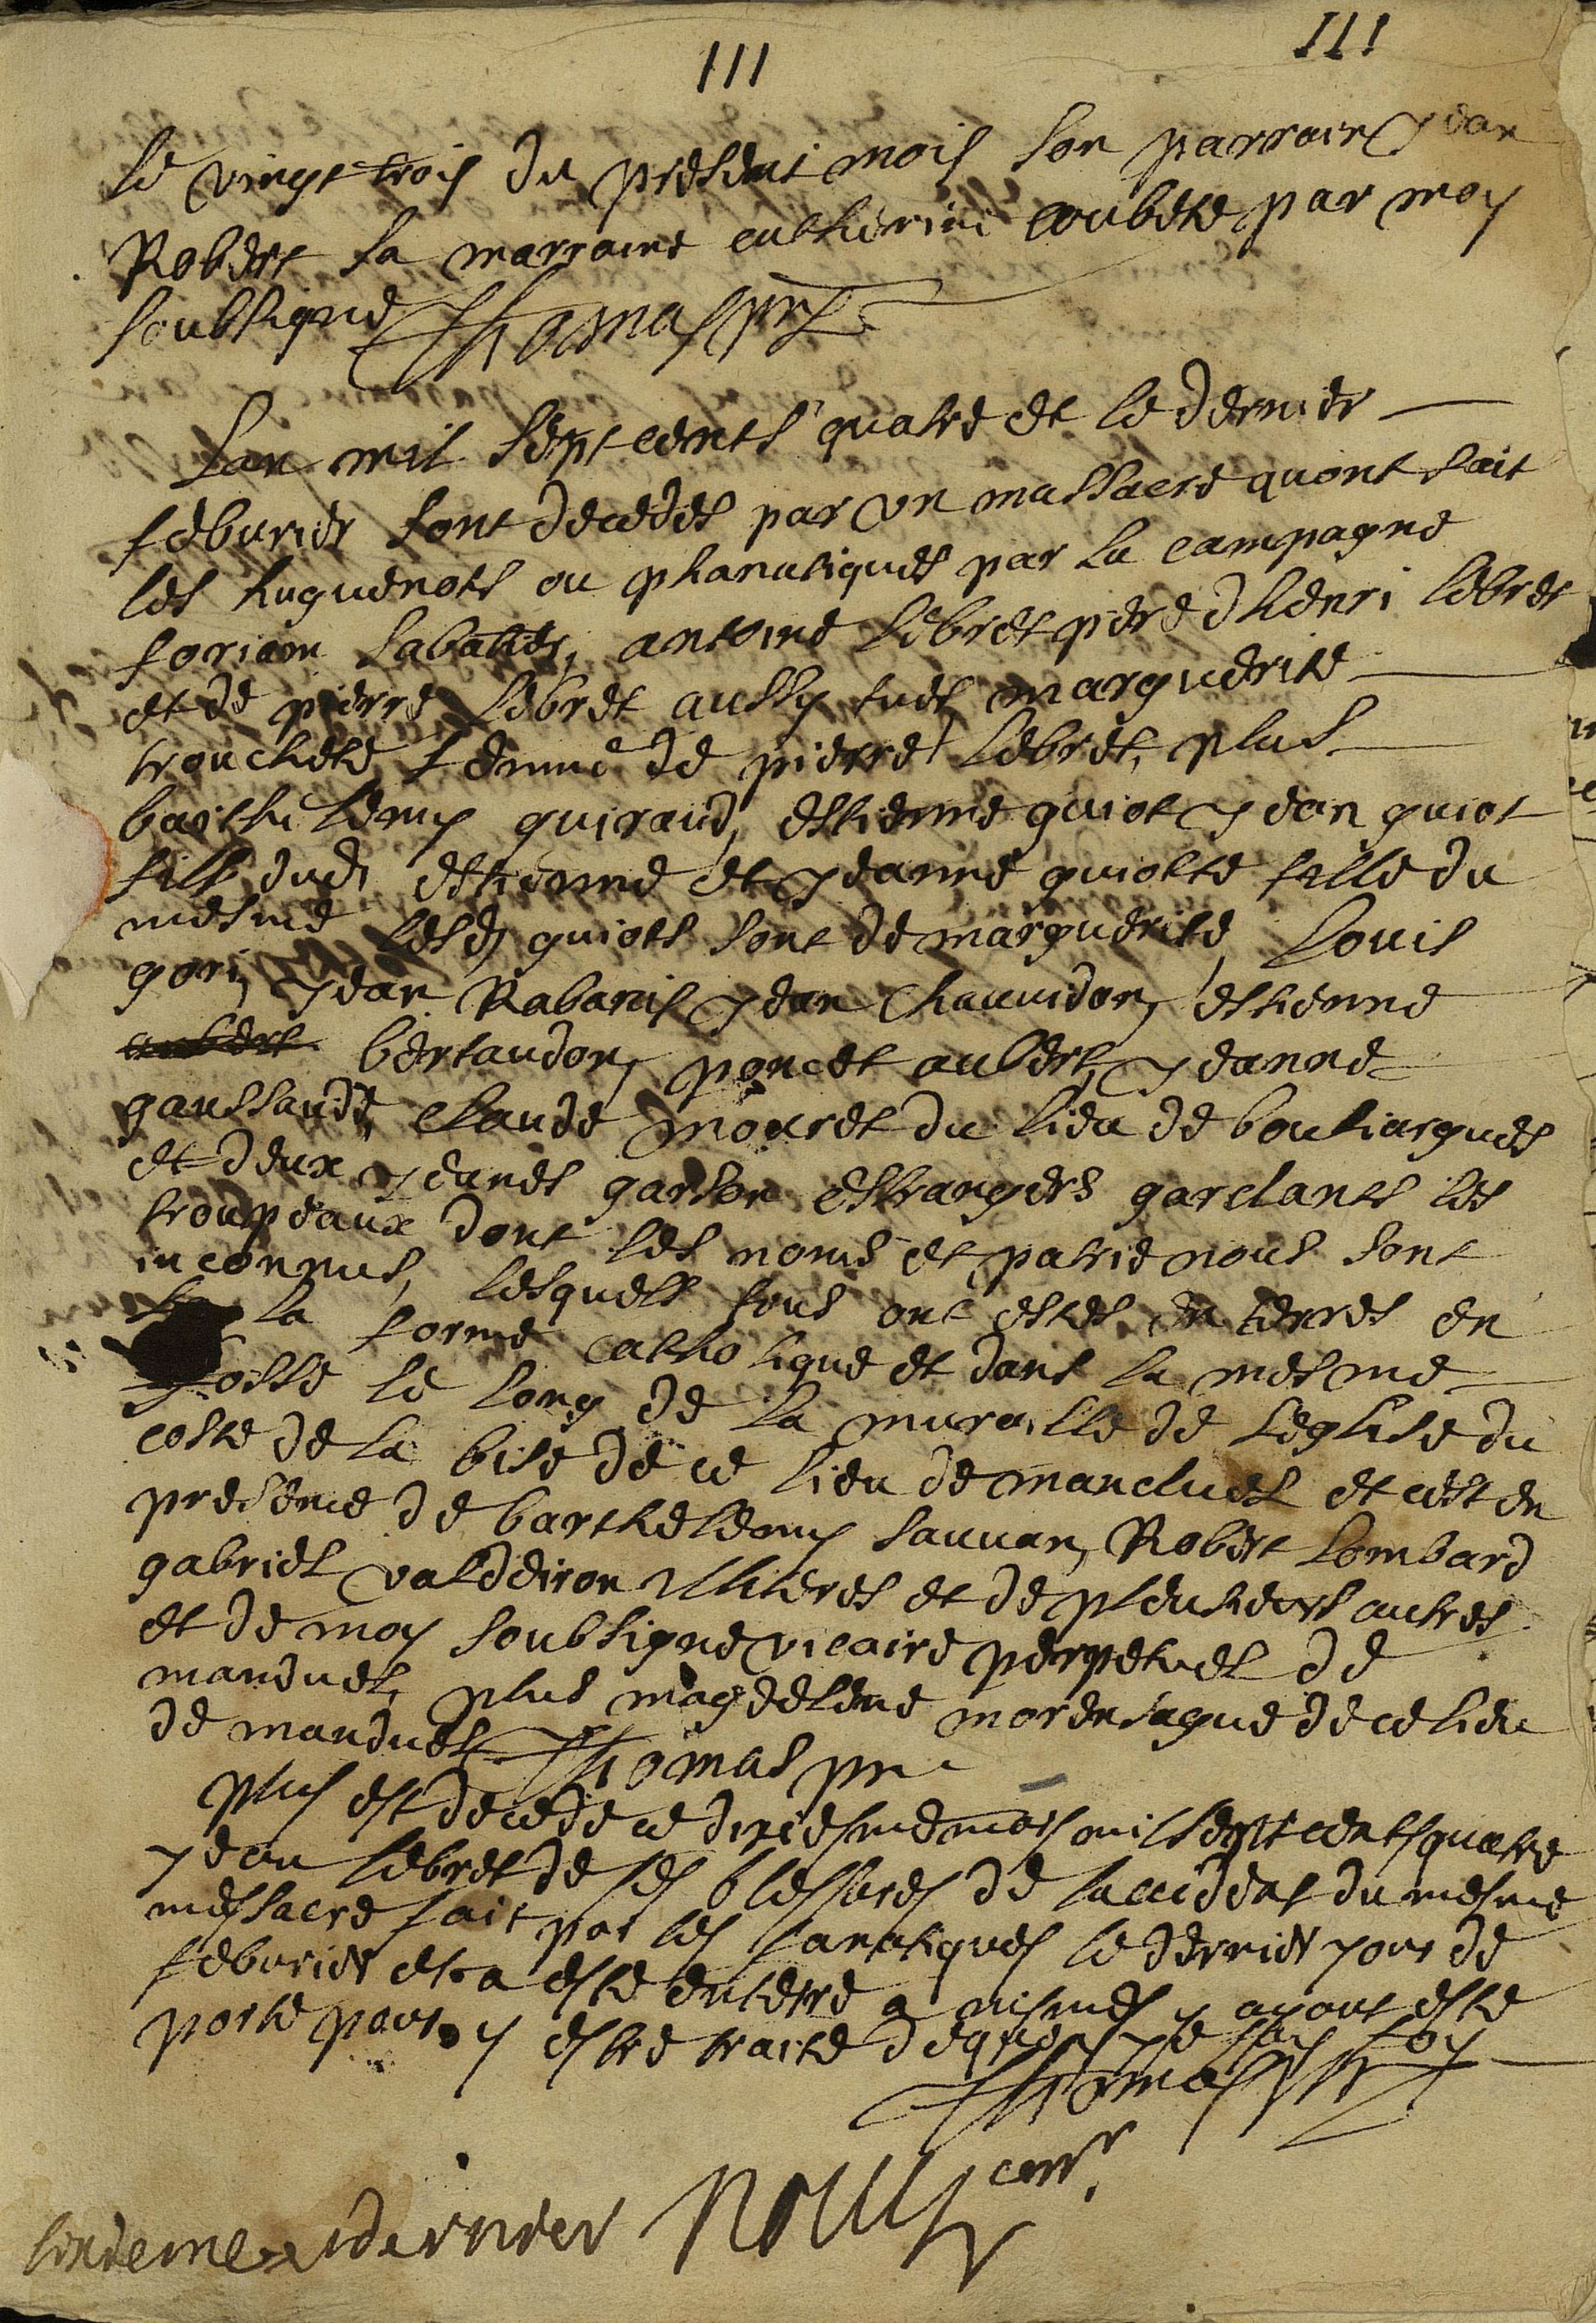 III
III
le vingt trois du present mois son parrain Jean
Robert sa marraine catherine coubete par moy
soubsigné Thomas prt
Lan mil septcents quatre et le dernier
feburier sont decedes par vn massacre quont fait
les huguenots ou phanatiques par la campagne
antoine lebret pere dhenri lebret
et de pierre lebret aussy tués marguerite
trouchete femme de pierre lebret, plus
barthelemy guiraud, estienne guiot jean guiot
fils dudt estienne et jeanne guiotte fille du
mesme lesds guiots sont de marguerite, Louis
gori, jean Rabanis jean Chauuidon, estienne
bertaudon, poncet aubert, jeanne
gaussande, claude mouret du lieu de bouliargues
et deux jeunes garson estrangers gardants les
troupeaux dont les noms et patrie nous sont
inconnus, lesquels tous ont estes enterres en
la forme catholique et dans la mesme
fosse le long de la muraille de leglise du
coste de la bise de ce lieu de manduel et cest en
presence de barthelemy sauuan, Robert Lombard
gabriel valdeiron et de pleusieurs autres
et de moy soubsigne vicaire perpetuel de
manduel, plus magdelene de ce lieu
de manduel Thomas pr
plus est decede ce mois mil septcents quatre
jean lebret de ses blessures de laccident du mesme
messacre fait par les fanatiques le dernier jour de
feburier et a esté enterre a nismes y ayant este
porte pour y estre traite dequoy je fais foy
Thomas prt
dernier